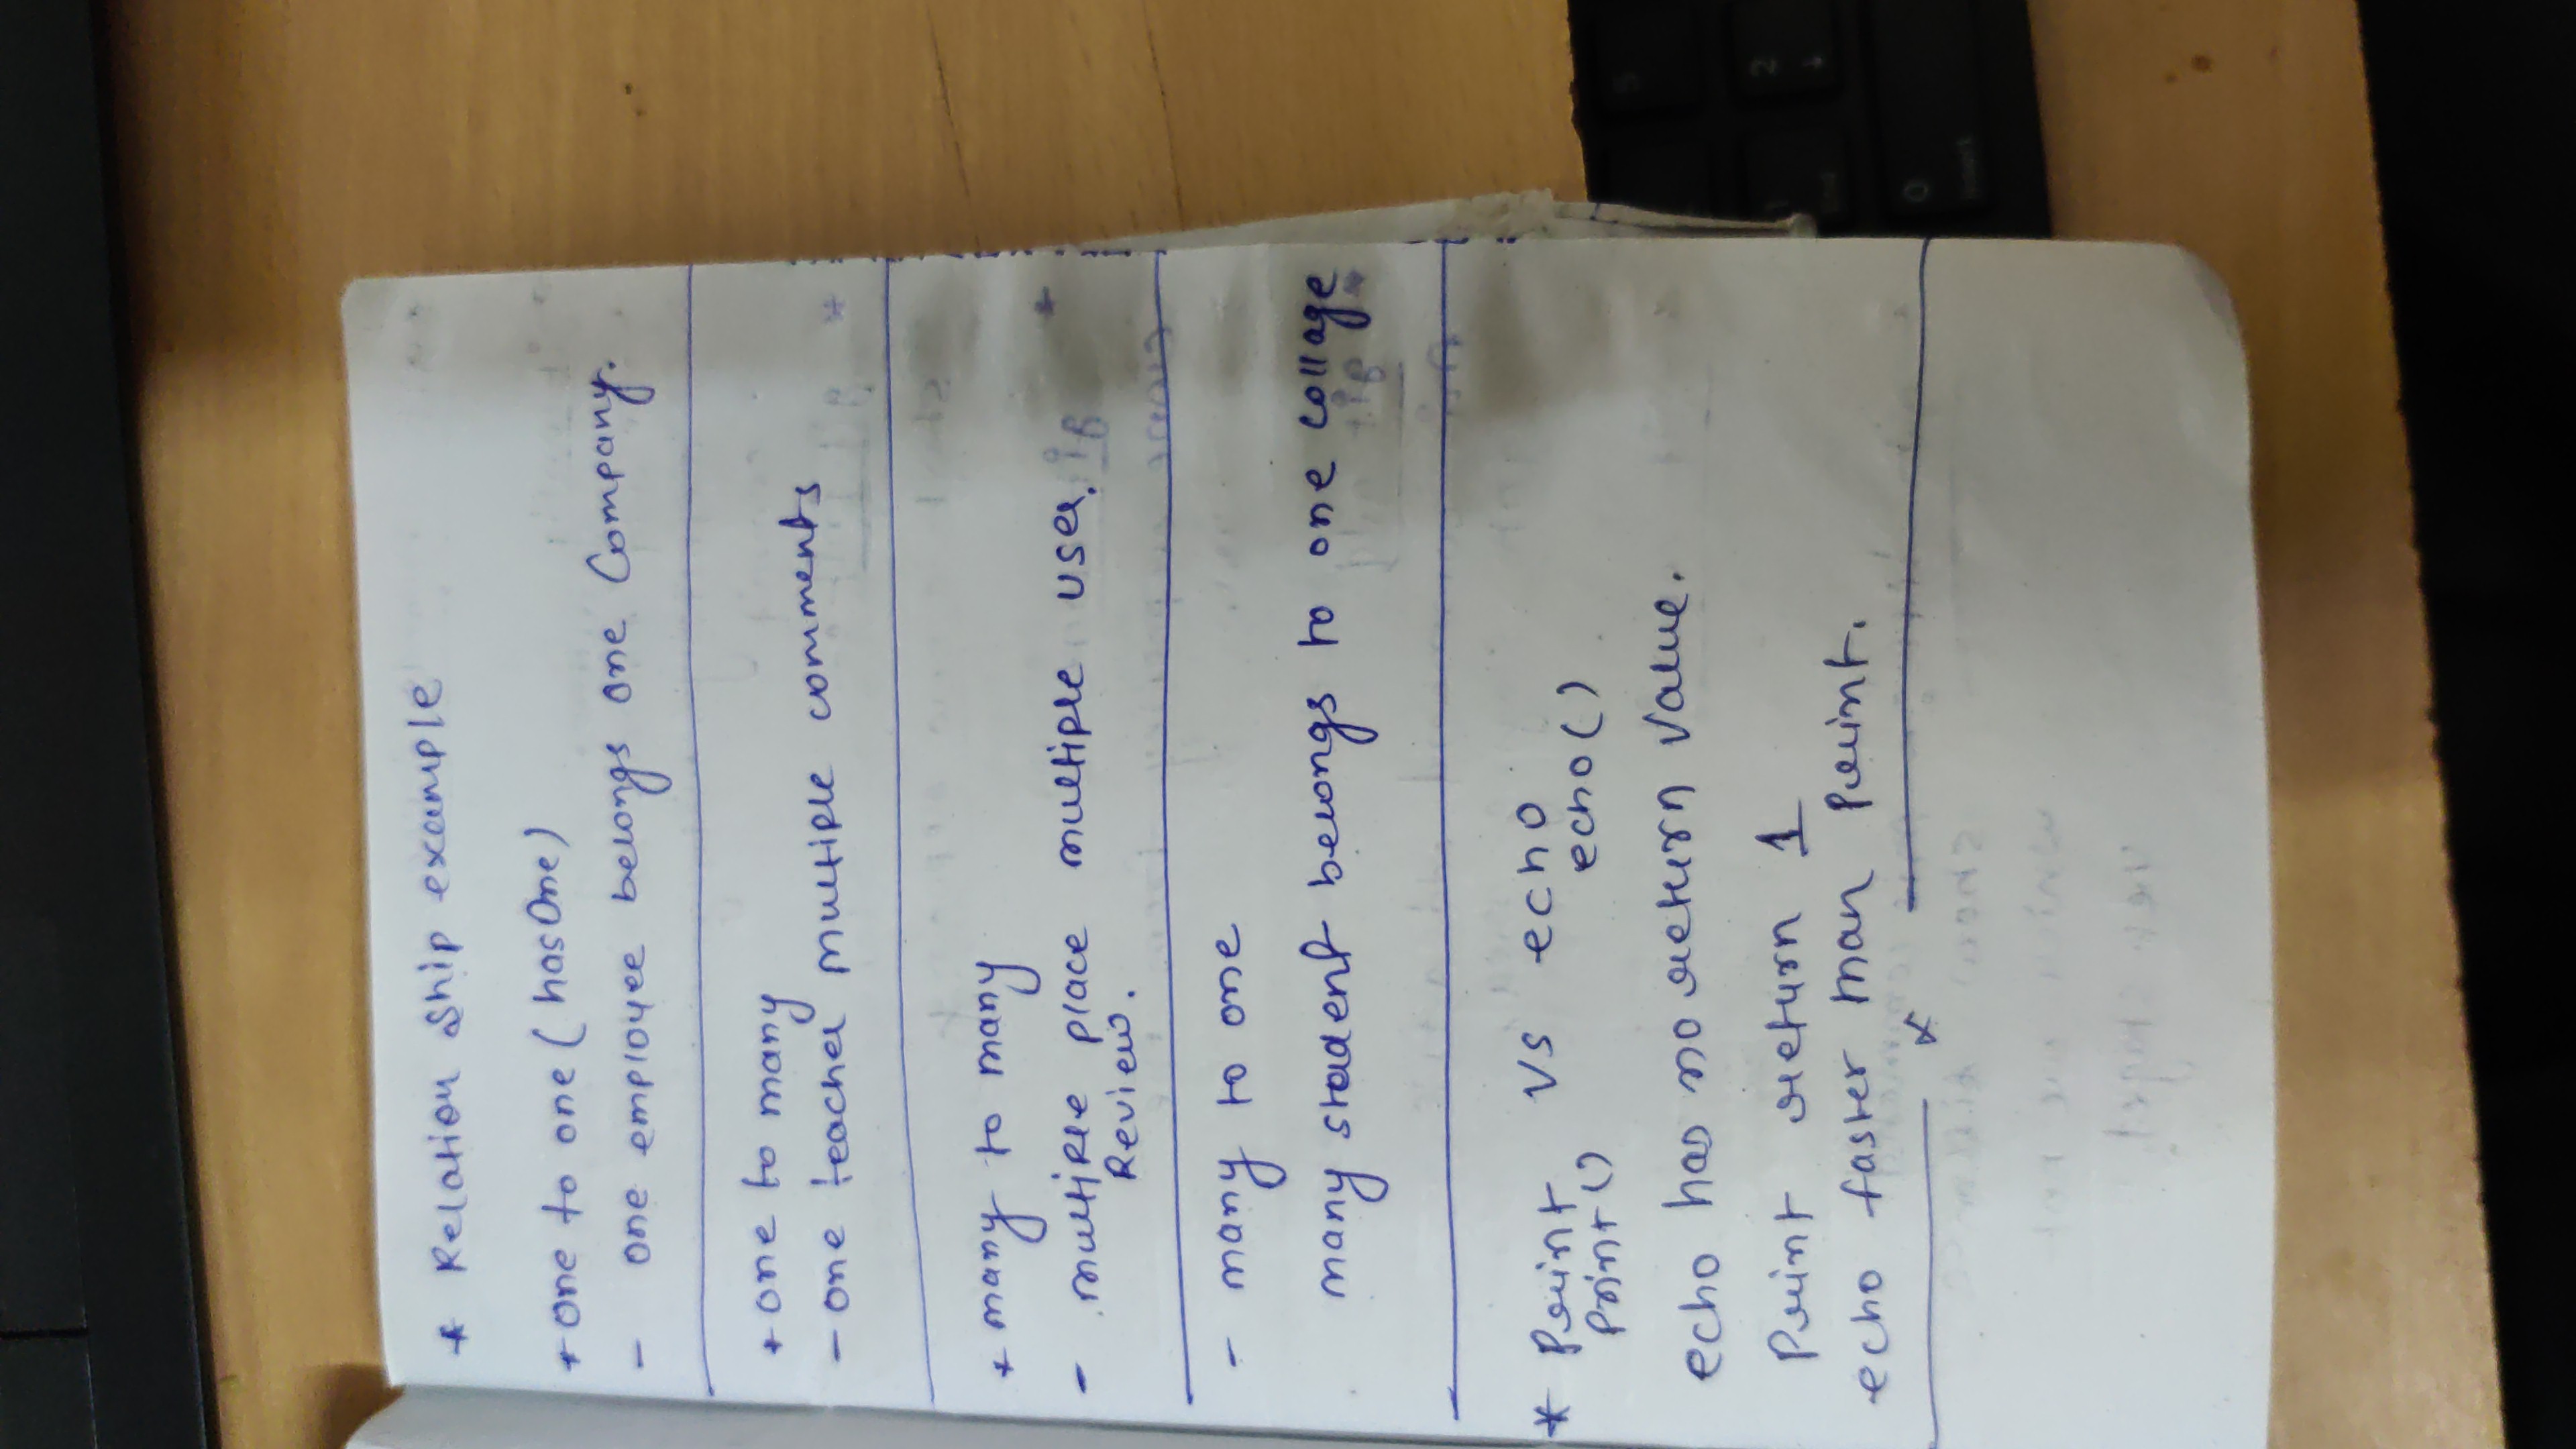 * Relation Ship example
* one to one ( hasOne)
- one employee belongs one Company.
* one to many
- one teacher multiple comments
* many to many
- multiple place multiple user.
Review.
- many to one
many student belongs to one collage
* Print vs echo
Print() echo()
echo has no return value.
Print return 1
echo faster than Print.